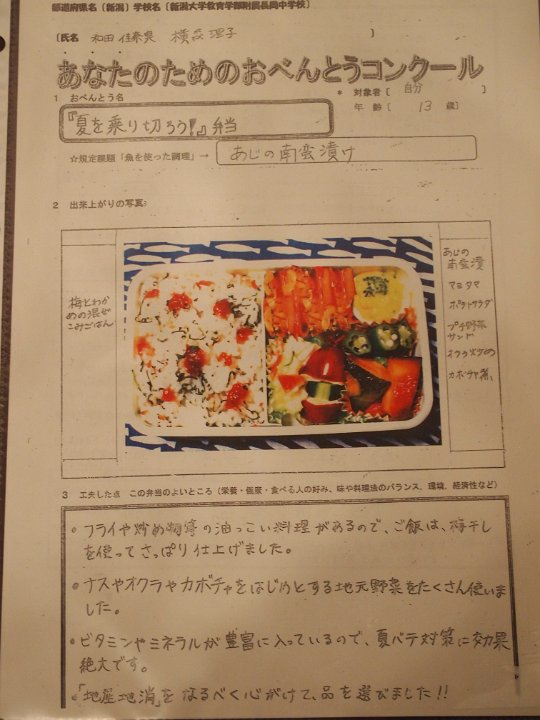 都道府県名〔新潟〕学校名〔新潟大学教育学部附属長岡中学校〕
〔氏名 和田 佳奈 横森 理子 〕
あなたのためのおべんとうコンクール
1 おべんとう名
* 対象者〔 自分 〕
年 齢〔 13 歳〕
『夏を乗り切ろう!』弁当
☆規定課題「魚を使った調理」→ あじの南蛮漬け
2 出来上がりの写真:
梅とわか
めの混ぜ
こみごはん
あじの
南蛮漬
マヨタマ
ポテトサラダ
プチ野菜
サンド
オクラ炒め
カボチャ煮
3 工夫した点 この弁当のよいところ(栄養・健康・食べる人の好み、味や料理法のバランス、環境、経済性など)
・フライや炒め物等の油っこい料理があるので、ご飯は、梅干し
を使ってさっぱり仕上げました。
・ナスやオクラやカボチャをはじめとする地元野菜をたくさん使いま
した。
・ビタミンやミネラルが豊富に入っているので、夏バテ対策に効果
絶大です。
・「地産地消」をなるべく心がけて、品を選びました!!